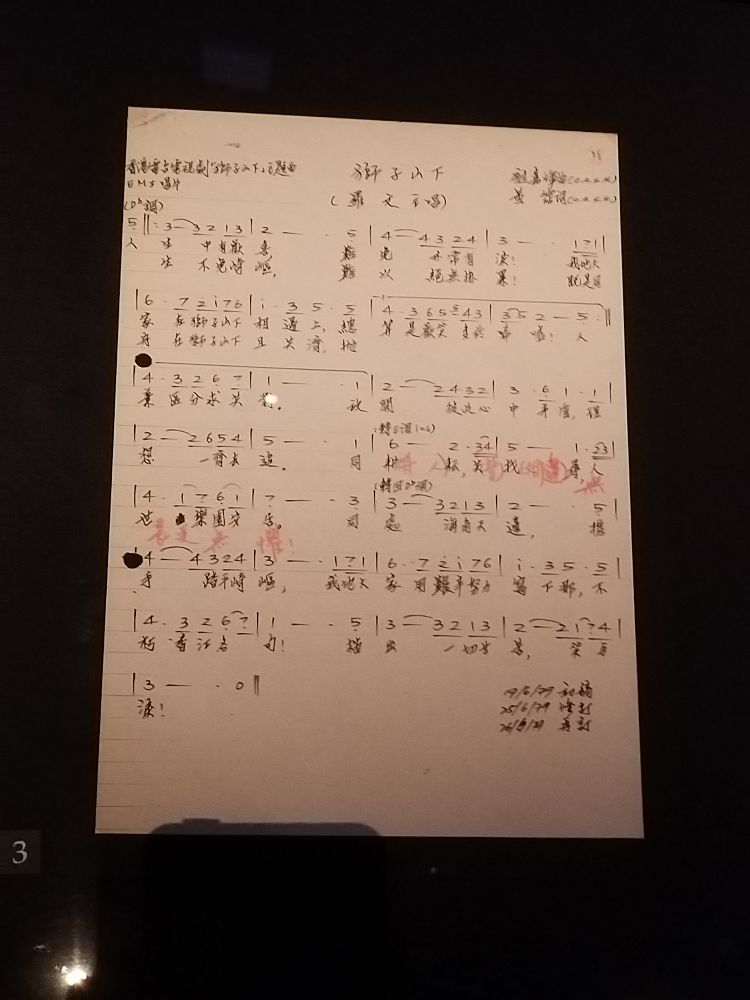 香港電台電視劇"獅子山下"主題曲 獅子山下
EMI唱片 (羅文主唱) 黃霑詞
(D♭調)
5 ‖: 3 — 3 2 1 3 | 2 — · 5 | 4 — 4 3 2 4 | 3 — · 1 7 1 |
人 生 中有歡 喜 難 免 亦常有 淚! 我地大
生 不免崎 嶇, 難 以 絕無掛 累! 既是同
| 6 · 7 2 i 7 6 | i · 3 5 · 5 | 4 · 3 6 5 5 4 3 | 3 5 2 — 5 :‖
家 在獅子山下 相 遇上, 總 算 是歡笑 多於 唏 噓! 人
舟 在獅子山下 且 共濟, 拋
| 4 · 3 2 6 7 | 1 — · 1 | 2 — 2 4 3 2 | 3 · 6 1 · 1 |
棄 區分求共 對。 放 開 彼此心 中 矛盾, 理
(轉E調1=6)
| 2 — 2 6 5 4 | 5 — · 1 | 6 — 2 · 3 4 | 5 — 1 · 2 3 |
想 一齊去 追。 同 耕 耘, 共 找 尋, 人
(轉回D♭調)
| 4 · 1 7 6 1 | 7 — · 3 | 3 — 3 2 1 3 | 2 — · 5 |
世 樂園安 居。 同 處 海角天 邊, 攜
| 4 — 4 3 2 4 | 3 — · 1 7 1 | 6 · 7 2 i 7 6 | i · 3 5 · 5 |
手 踏平崎 嶇, 我地大 家 用艱辛努力 寫 下那, 不
| 4 · 3 2 6 7 | 1 — · 5 | 3 — 3 2 1 3 | 2 — 2 1 7 4 |
朽 香江名 句! 出 一切 笑與
| 3 — · 0 ‖
淚!
19/6/79 初稿
25/6/79
再訂
3